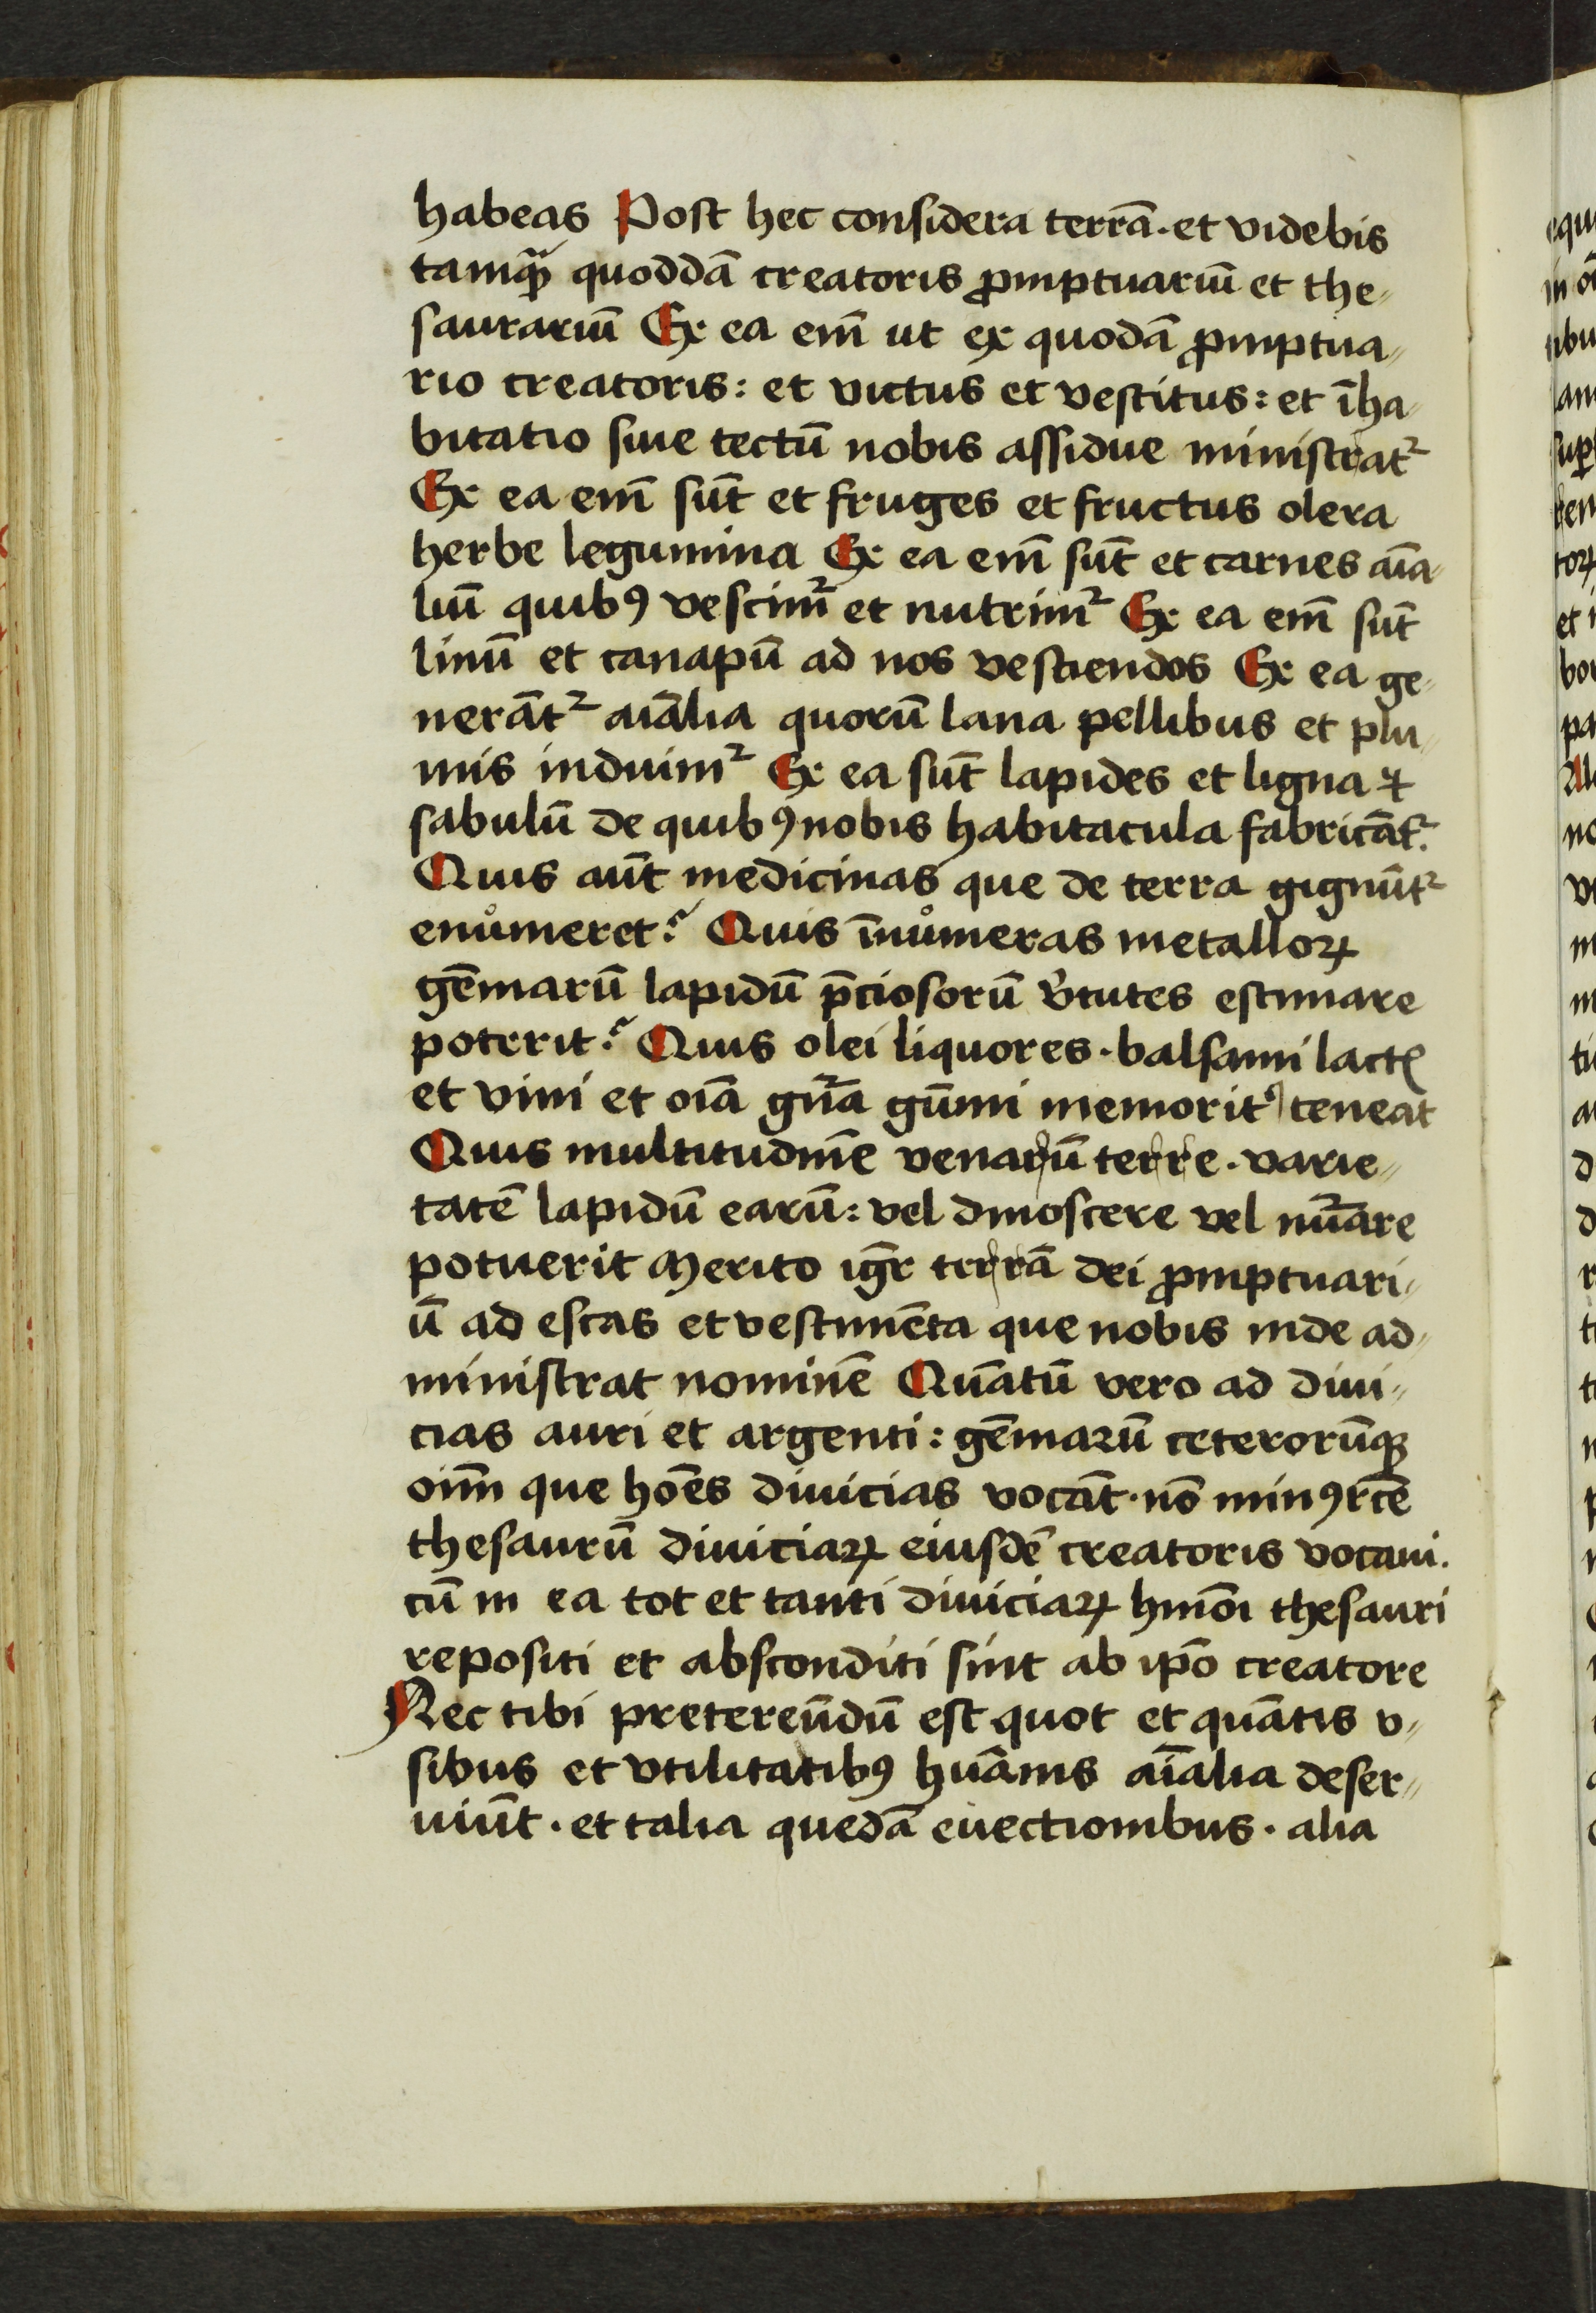 habeas Post hec considera terrā. et videbis
tamqꝫ quoddā creatoris ꝓmptuariū et the-
saurariū Ex ea em̄ ut ex quodā ꝓmptua-
rio creatoris: et victus et vestitus: et īha-
bitatio siue tectū nobis assidue ministratᷣ
Ex ea em̄ sūt et fruges et fructus olera
herbe legumina Ex ea em̄ sūt et carnes aīa-
liū quibꝰ vescimᷣ et nutrimᷣ Ex ea em̄ sūt
linū et canapū ad nos vestiendos Ex ea ge-
nerātᷣ aīalia quorū lana pellibus et plu-
mis induimᷣ Ex ea sūt lapides et ligna ⁊
sabulū de quibꝰ nobis habitacula fabricātᷣ.
Quis aūt medicinas que de terra gignūtᷣ
enůmeret? Quis īnůmeras metalloꝝ
gēmarū lapidū p̄ciosorū v̓tutes estimare
poterit? Quis olei liquores. balsami lactꝭ
et vini et oīa gn̄a gūmi memorit̓ teneat
Quis multitudinē venarū terre. varie-
tatē lapidū earū: vel dinoscere vel nūare
potuerit Merito igr̄ terrā dei ꝓmptuari-
ū ad escas et vestimēta que nobis inde ad-
ministrat nominē Quātū vero ad diui-
cias auri et argenti: gēmarū ceterorūqꝫ
oīm que hoēs diuicias vocāt. nō minꝰ rc̄e
thesaurū diuiciaꝝ eiusdē creatoris vocaui.
cū in ea tot et tanti diuiciaꝝ hmōi thesauri
repositi et absconditi sint ab ip̄o creatore
Nec tibi pretereūdū est quot et quātis v-
sibus et vtilitatibꝰ huānis aīalia deser-
uiūt. et talia quedā euectionibus. alia